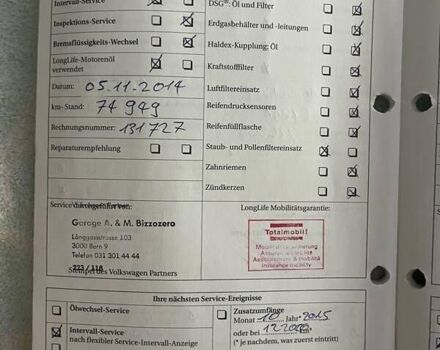 Intervall-Service
Inspektions-Service
Bremsflüssigkeits-Wechsel
LongLife-Motorenöl
verwendet
Datum: 05.11.2014
km-Stand: 74 949
Rechnungsnummer: 131727
Reparaturempfehlung
DSG®: Öl und Filter
Erdgasbehälter und -leitungen
Haldex-Kupplung: Öl
Kraftstofffilter
Luftfiltereinsatz
Reifendrucksensoren
Reifenfüllflasche
Staub- und Pollenfiltereinsatz
Zahnriemen
Zündkerzen
Service durchgeführt von:
Garage A. & M. Bizzozero
Länggassstrasse 103
3000 Bern 9
Telefon 031 301 44 44
223 / 118
Stempel des Volkswagen Partners
LongLife Mobilitätsgarantie:
Totalmobil!
Mobilitätsversicherung
Assurance mobilité
Assicurazione mobilità
Insurance mobility
Ihre nächsten Service-Ereignisse
Ölwechsel-Service
Intervall-Service
nach flexibler Service-Intervall-Anzeige
Zusatzumfänge
Monat 10 Jahr* 2015
oder bei
(* je nachdem, was zuerst eintritt)